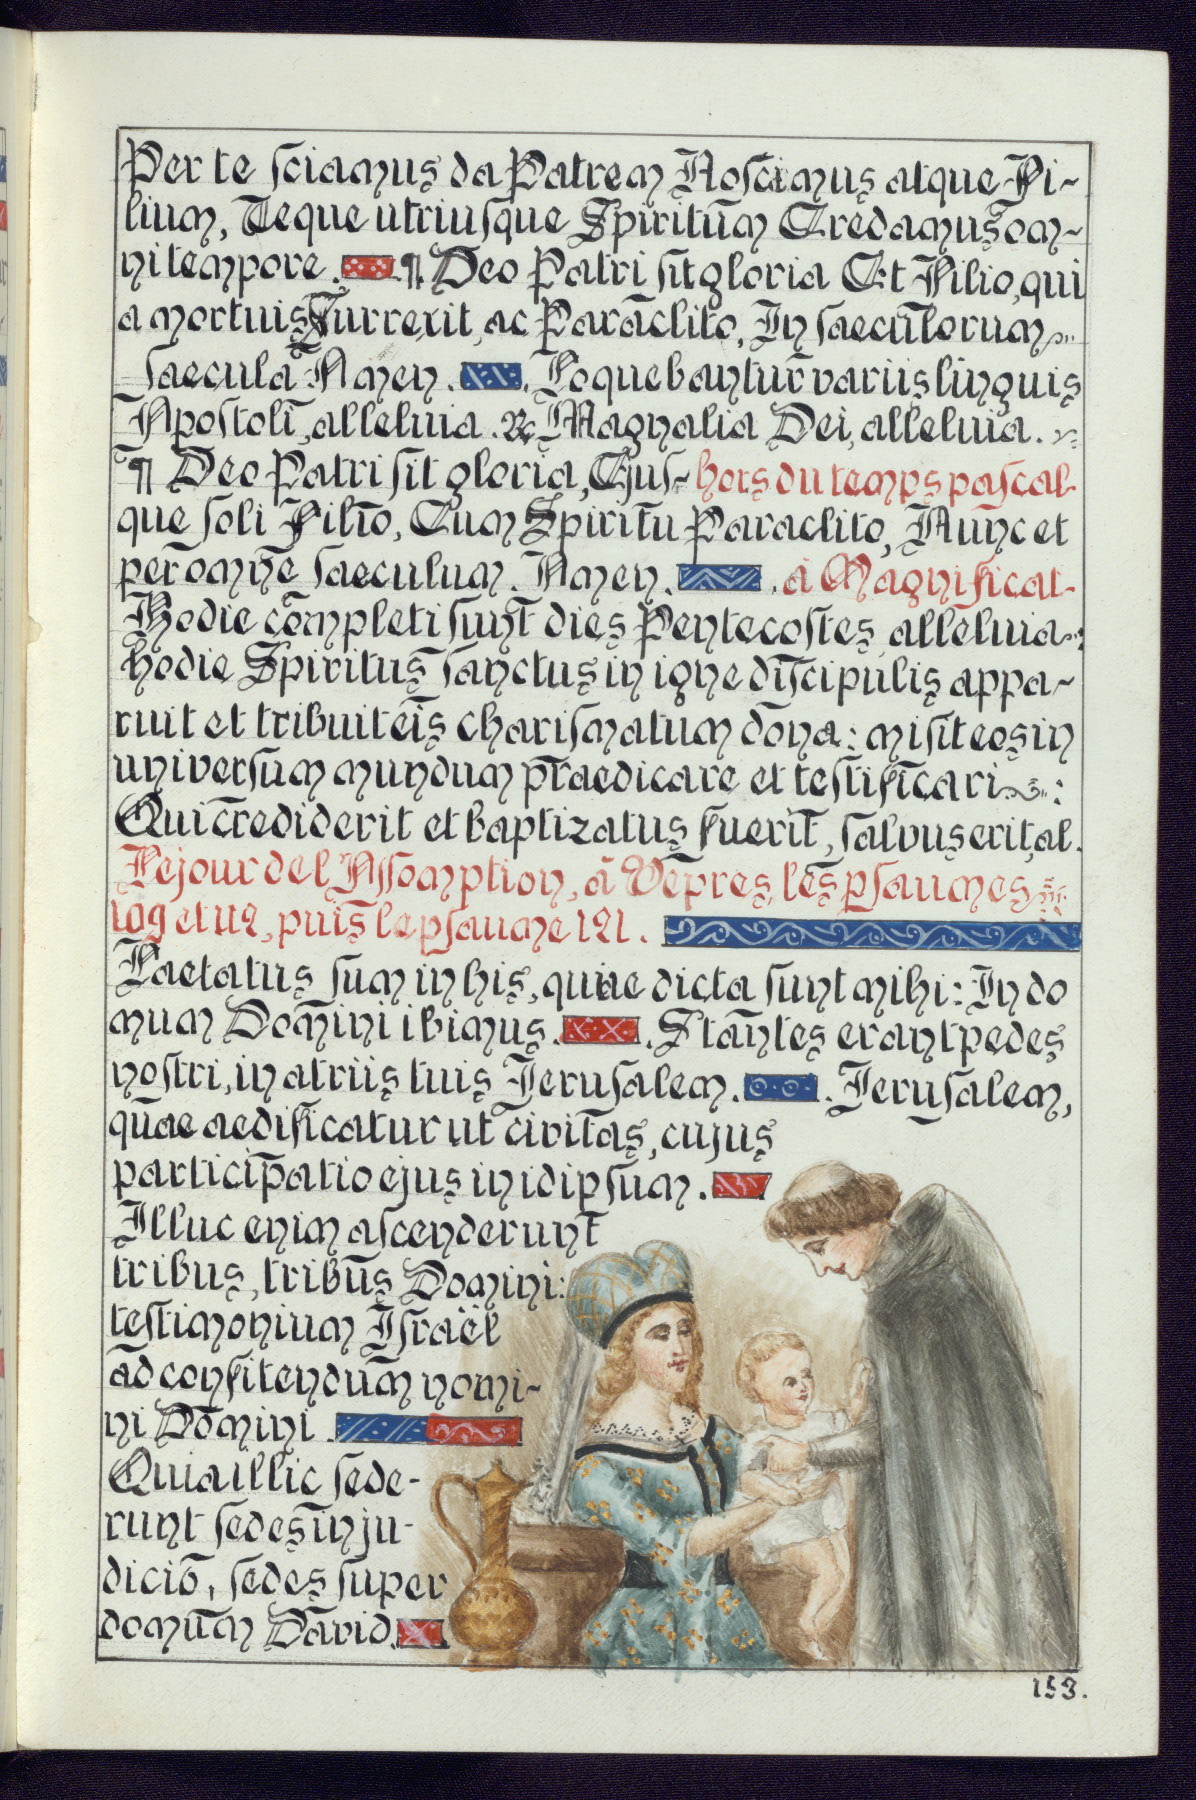 Per te sciamus da Patrem Noscamus atque Fi~
lium, Teque utriusque Spiritum Credamus om~
ni tempore. ¶ Deo Patri sit gloria Et Filio, qui
a mortuis surrexit, ac Paraclito, In saeculorum
saecula Amen. Loquebantur variis linguis
Apostoli, alleluia. ℞ Magnalia Dei, alleluia.
¶ Deo Patri sit gloria, Ejus~ hors du temps pascal-
que soli Filio, Cum Spiritu Paraclito, Nunc et
per omne saeculum. Amen. à Magnificat-
Hodie completi sunt dies Pentecostes, alleluia:
hodie Spiritus sanctus in igne discipulis appa~
ruit et tribuit eis charismatum dona: misit eos in
universum mundum praedicare et testificari:
Qui crediderit et baptizatus fuerit, salvus erit, al.
Le jour de l'Assomption, à Vêpres, les psaumes
109 et 112, puis le psaume 121.
Laetatus sum in his, quae dicta sunt mihi: In do
mum Domini ibimus. Stantes erant pedes
nostri, in atriis tuis Jerusalem. Jerusalem,
quae aedificatur ut civitas, cujus
participatio ejus in idipsum.
Illuc enim ascenderunt
tribus, tribus Domini:
testimonium Israël
ad confitendum nomi~
ni Domini.
Quia illic sede-
runt sedes in ju-
dicio, sedes super
domum David.
153.